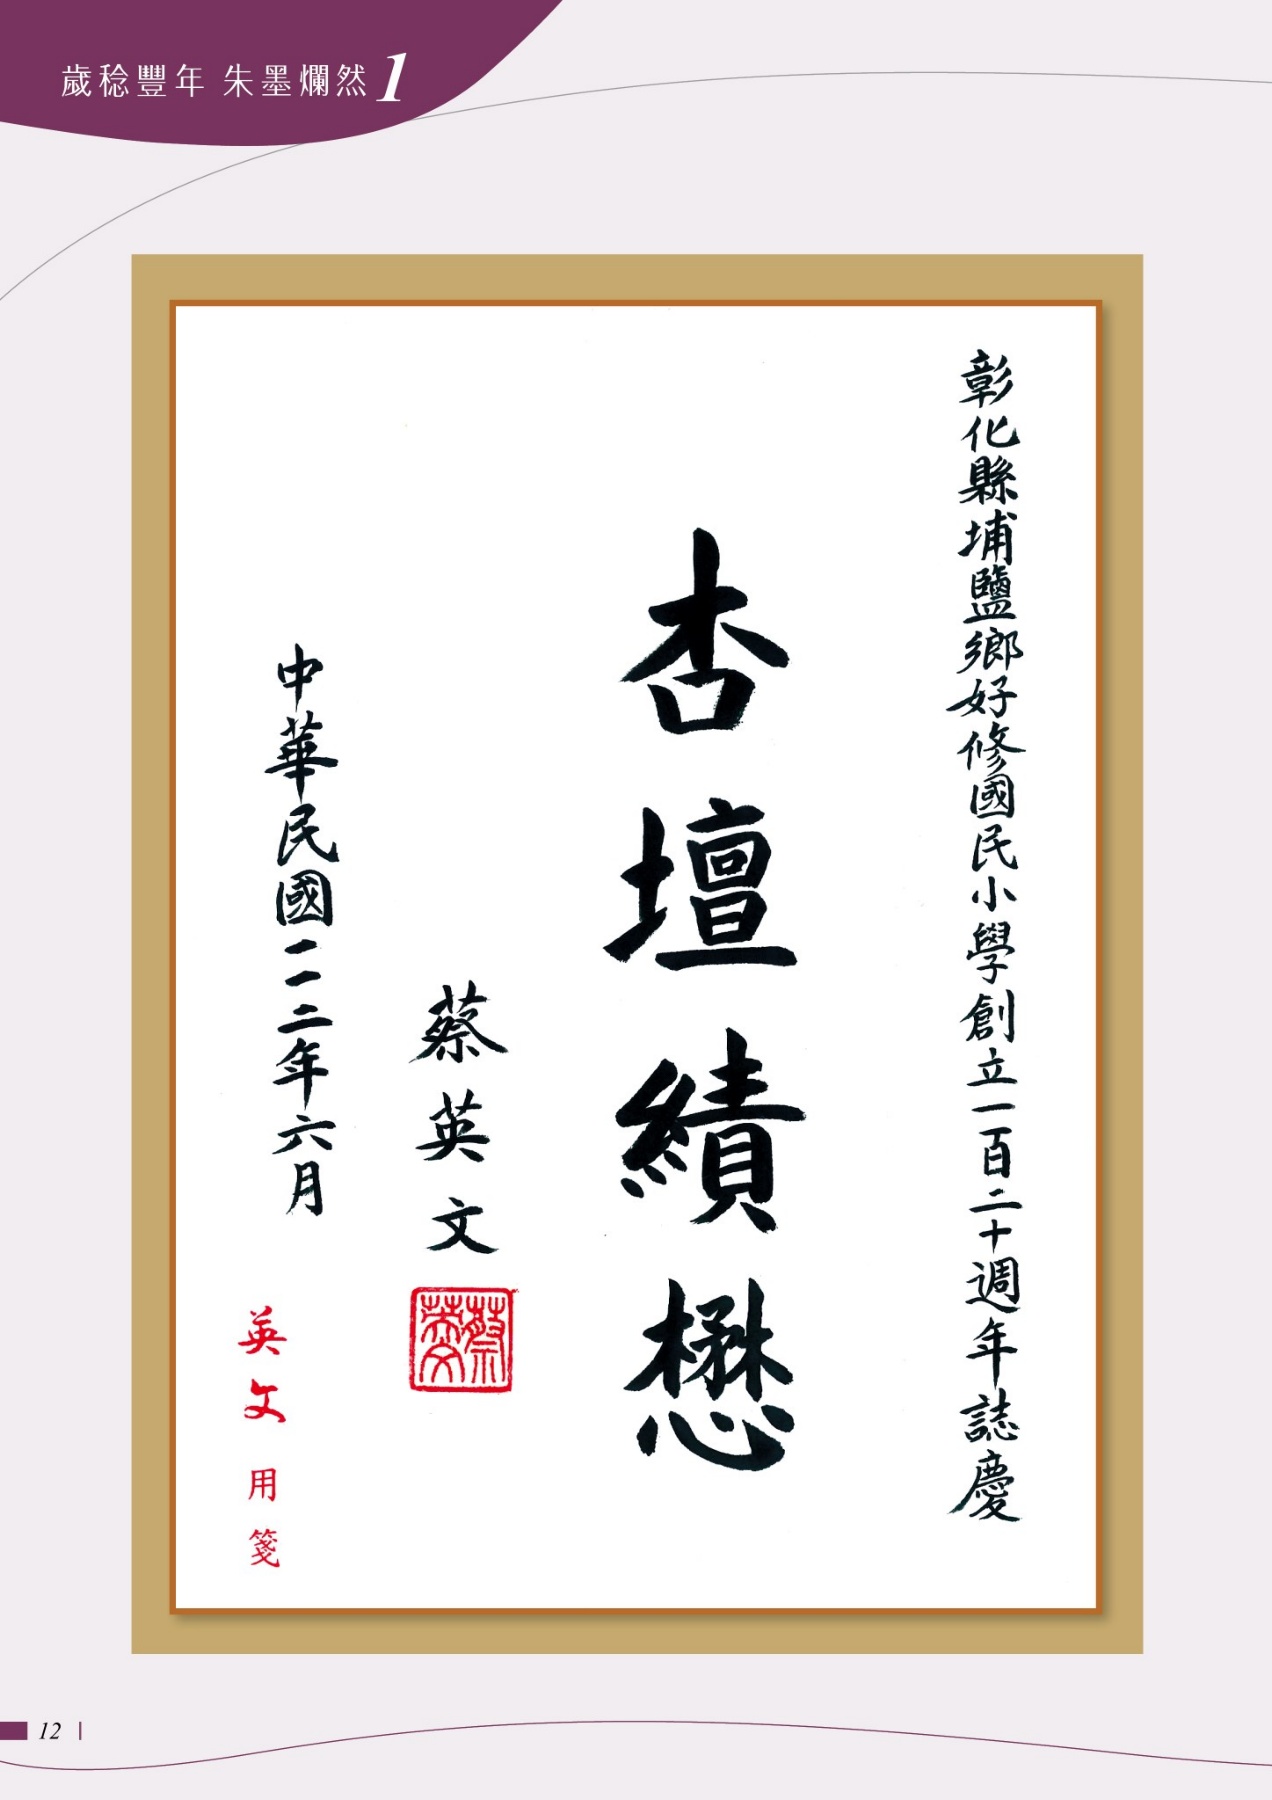 歲稔豐年 朱墨爛然1
彰化縣埔鹽鄉好修國民小學創立一百二十週年誌慶
杏壇績懋
蔡英文
蔡英文
中華民國一一二年六月
英文用箋
12